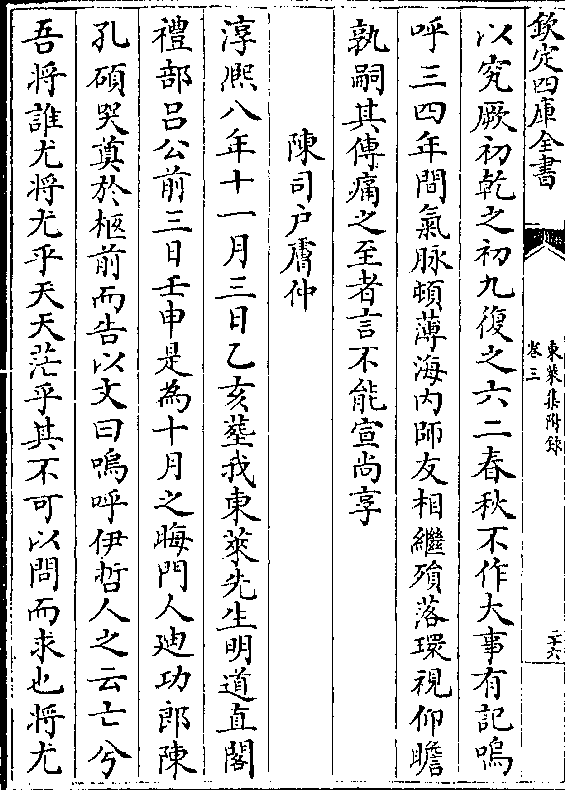 欽定四庫全書
東萊集附錄
卷三
二十六
以究厥初乾之初九復之六二春秋不作大事有記嗚
呼三四年間氣脉頓薄海内師友相繼殞落環視仰瞻
孰嗣其傳痛之至者言不能宣尚享
陳司户膚仲
淳熙八年十一月三日乙亥塟我東萊先生明道直閣
禮部吕公前三日壬申是為十月之晦門人廸功郎陳
孔碩哭奠於柩前而告以文曰嗚呼伊哲人之云亡兮
吾將誰尤將尤乎天天茫乎其不可以問而求也將尤